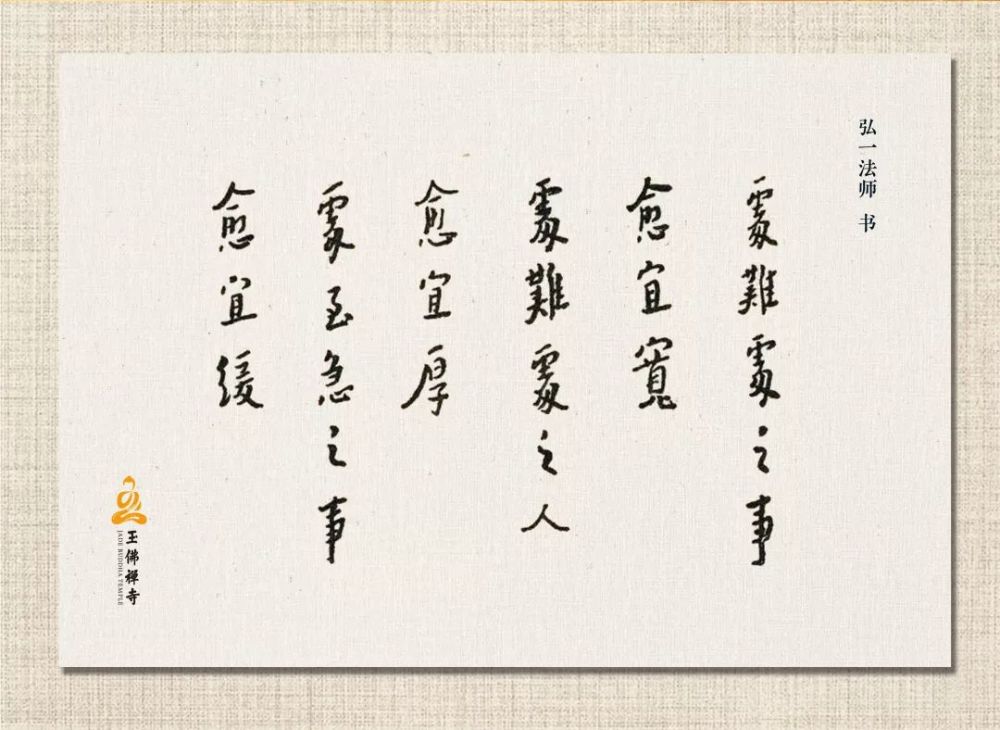 弘一法师 书
處難處之事
愈宜寬
處難處之人
愈宜厚
處至急之事
愈宜緩
玉佛禅寺
JADE BUDDHA TEMPLE